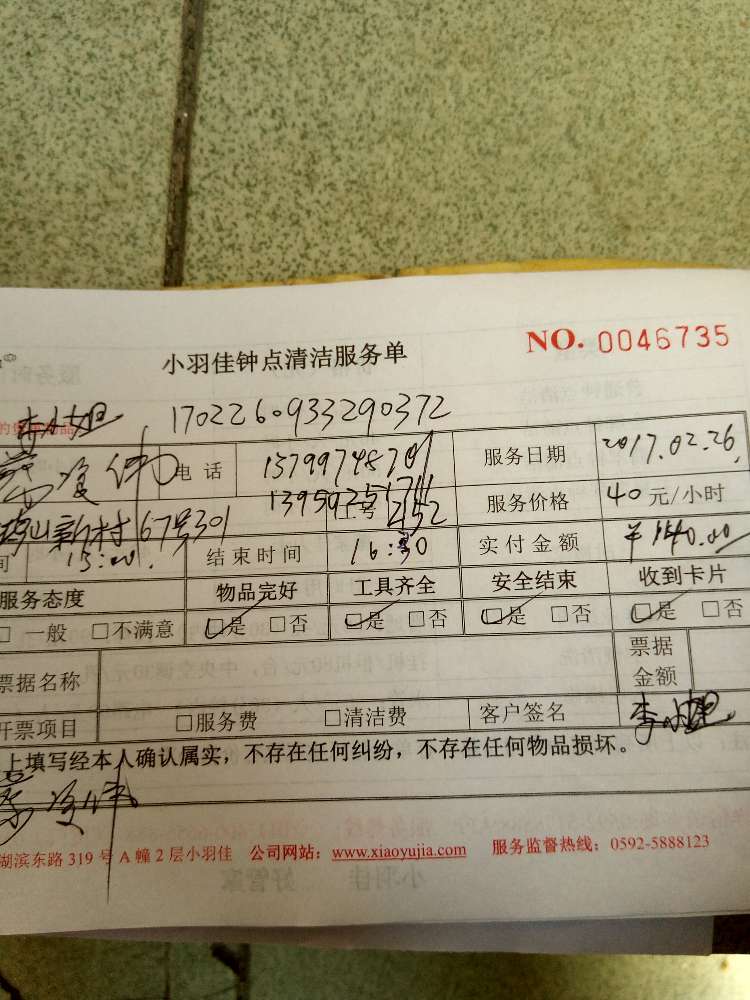 小羽佳钟点清洁服务单 NO. 0046735
李小姐 1702260933290372
电话 15799748701 服务日期 2017.02.26
13959251711
新村67号301 工号 2152 服务价格 40元/小时
间 13:00 结束时间 16:30 实付金额 ¥140.00
服务态度 物品完好 工具齐全 安全结束 收到卡片
□一般 □不满意 □是 □否 □是 □否 □是 □否 □是 □否
票据名称 票据金额
开票项目 □服务费 □清洁费 客户签名 李小姐
上填写经本人确认属实，不存在任何纠纷，不存在任何物品损坏。
湖滨东路 319 号 A 幢 2 层小羽佳 公司网站：www.xiaoyujia.com 服务监督热线：0592-5888123